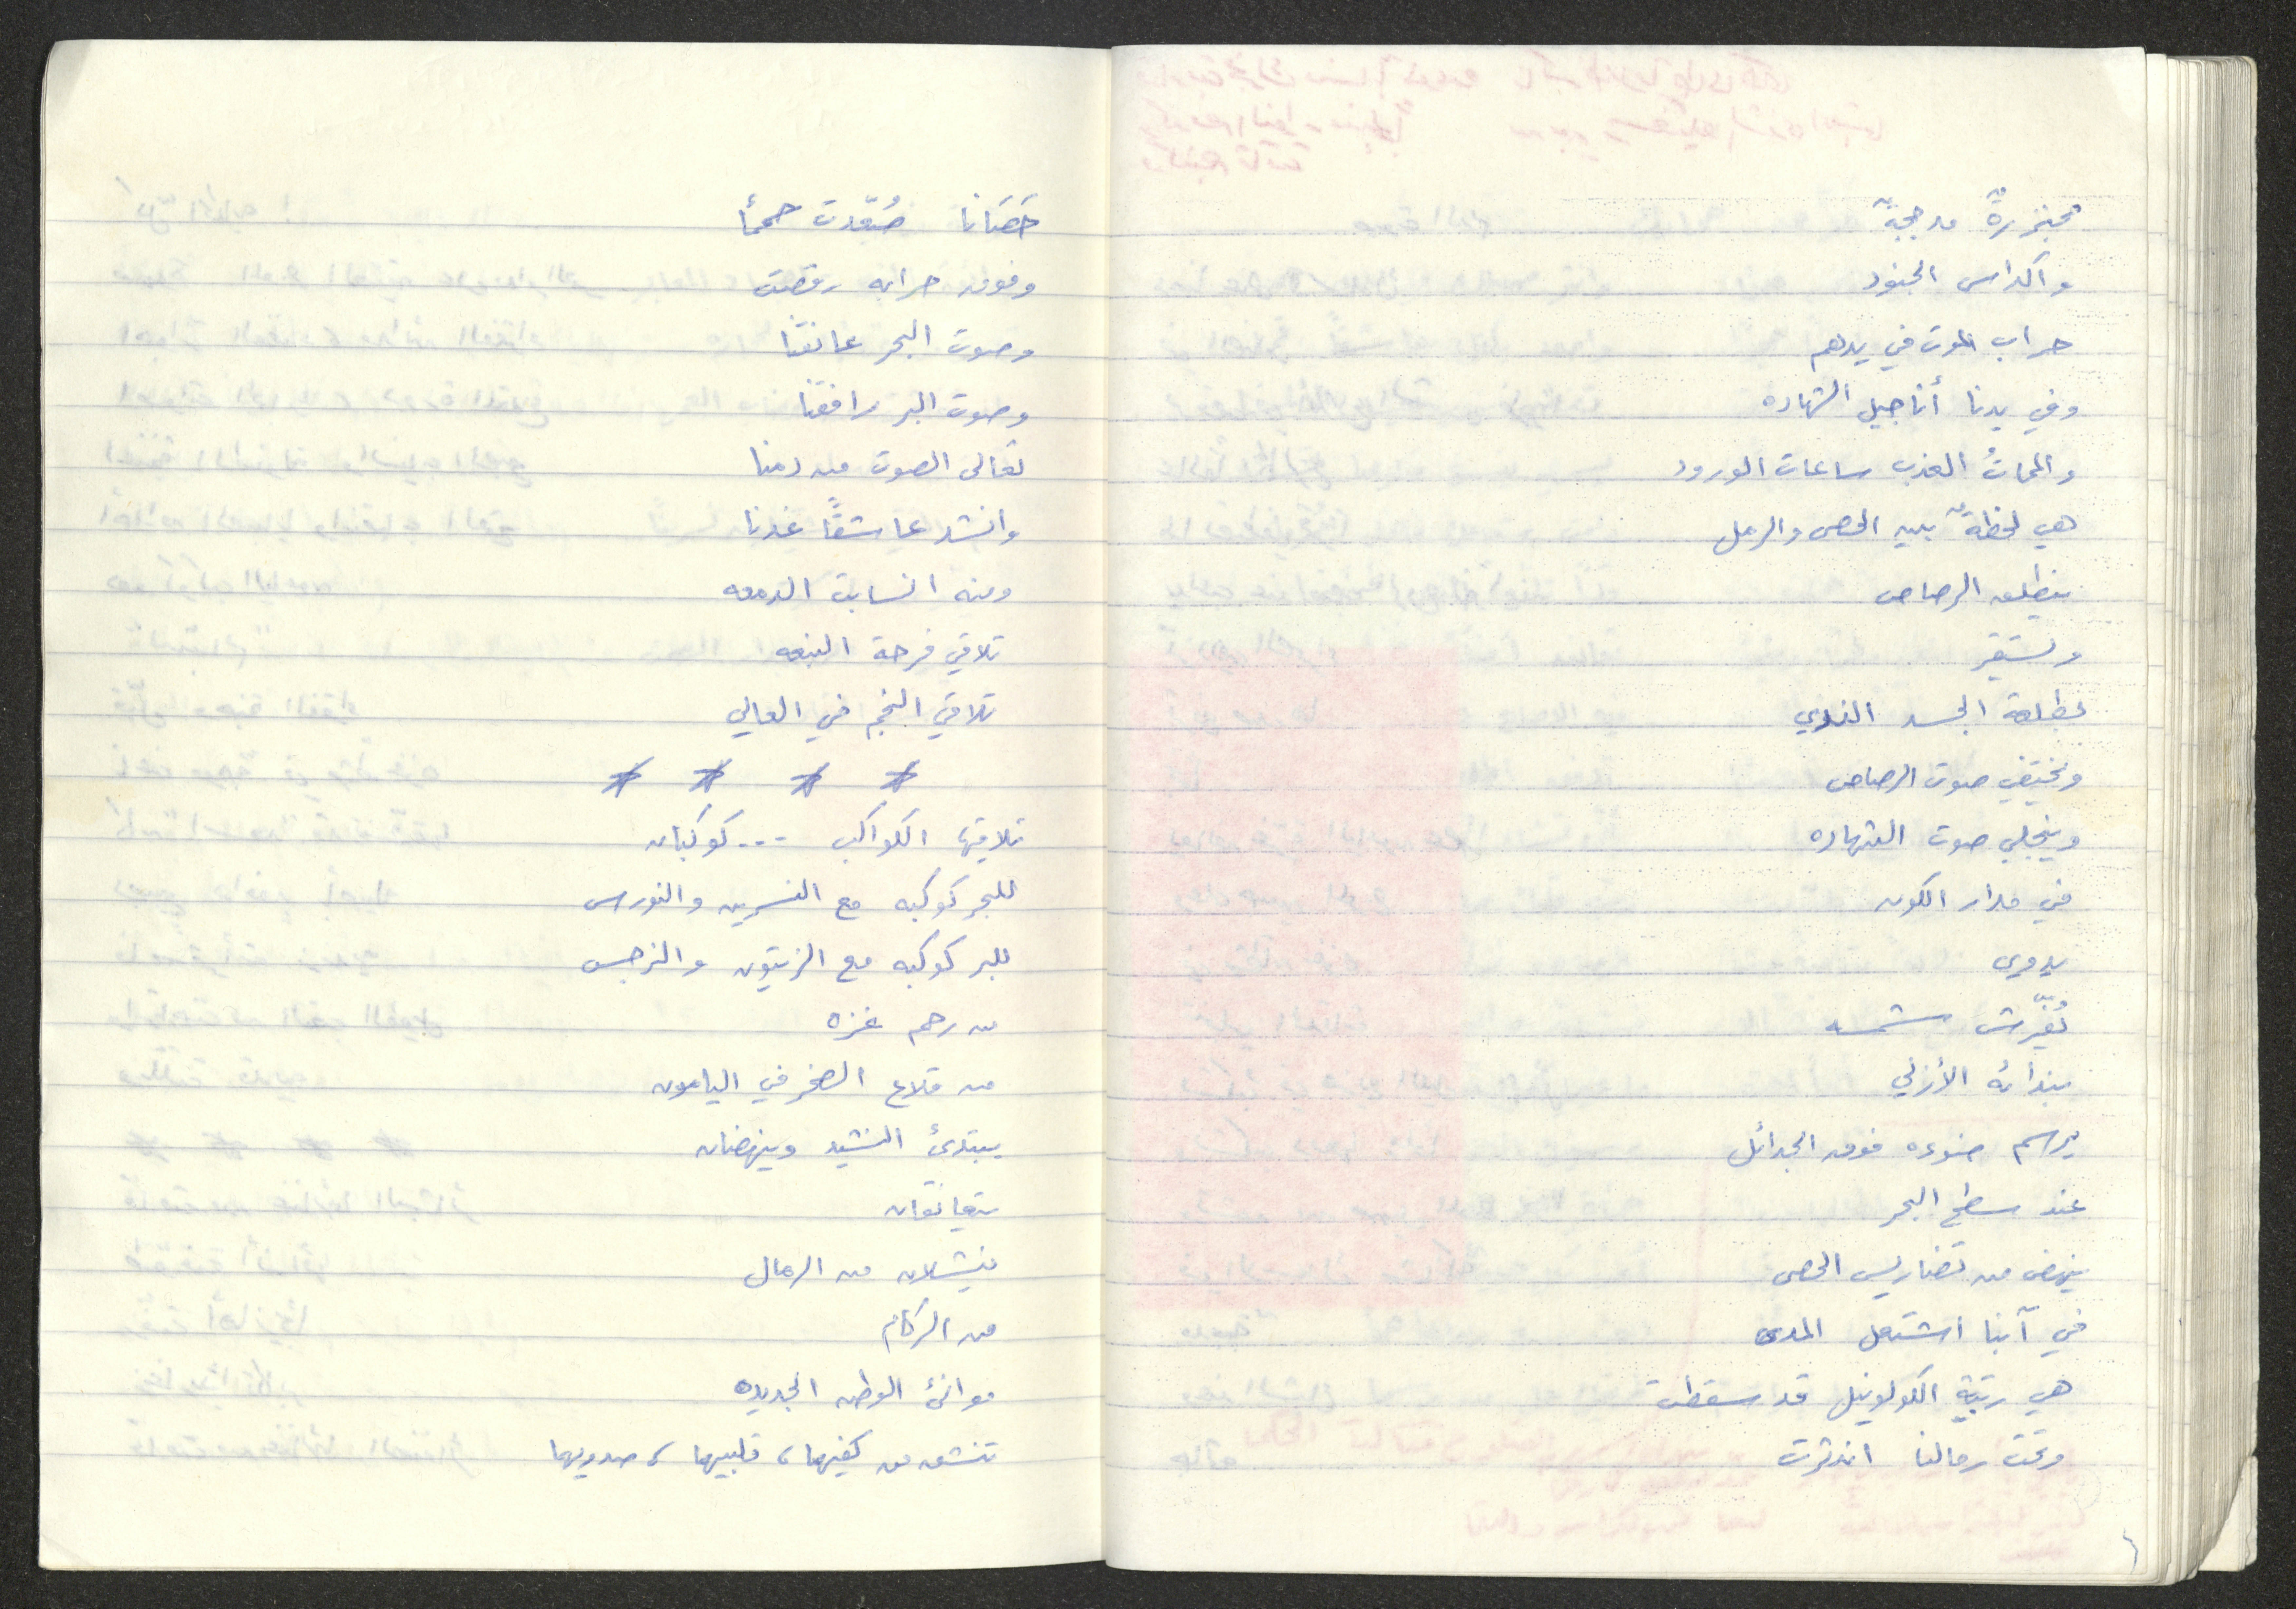 مجنزرةٌ مدججةٌ
وأكداس الجنود
حراب الموت في يدهم
وفي يدنا أناجيل الشهاده
والمماتُ العذب ساعات الورود
هي لحظةٌ بين الحصى والرمل
ينطلق الرصاص
ويستقر
بطلعة الجسد الندي
ويختفي صوت الرصاص
وينجلي صوت الشهاده
في مدار الكون
يدوي
شمسه
بندائه الأزلي
يرسم ضوءه فوق الجدائل
عند سطح البحر
ينهض من تضاريس الحصى
في آننا اشتعل المدى
هي رتبة الكولونيل قد سقطت
وتحت رمالنا اندثرت
حَصَانا صُعّدت حمماً
وفوق حرابه رقصت
وصوت البحر عانقنا
وصوت البر رافقنا
تعالى الصوت من دمنا
وانشد عاشقاً غدنا
ومنه انسابت الدمعه
تلاقي فرحة النبعه
تلاقي النجم في العالي
تلاقيها الكواكب ... كوكبان
للبحر كوكبه مع النسرين والنورس
للبر كوكبه مع الزيتون والنرجس
من رحم غزه
من قلاع الصخر في اليامون
يبتدئ النشيد وينهضان
يتعانقان
ينشلان من الرمال
من الركام
موانئ الوطن الجديده
تنشق من كفيهما، قلبيهما، صدريهما